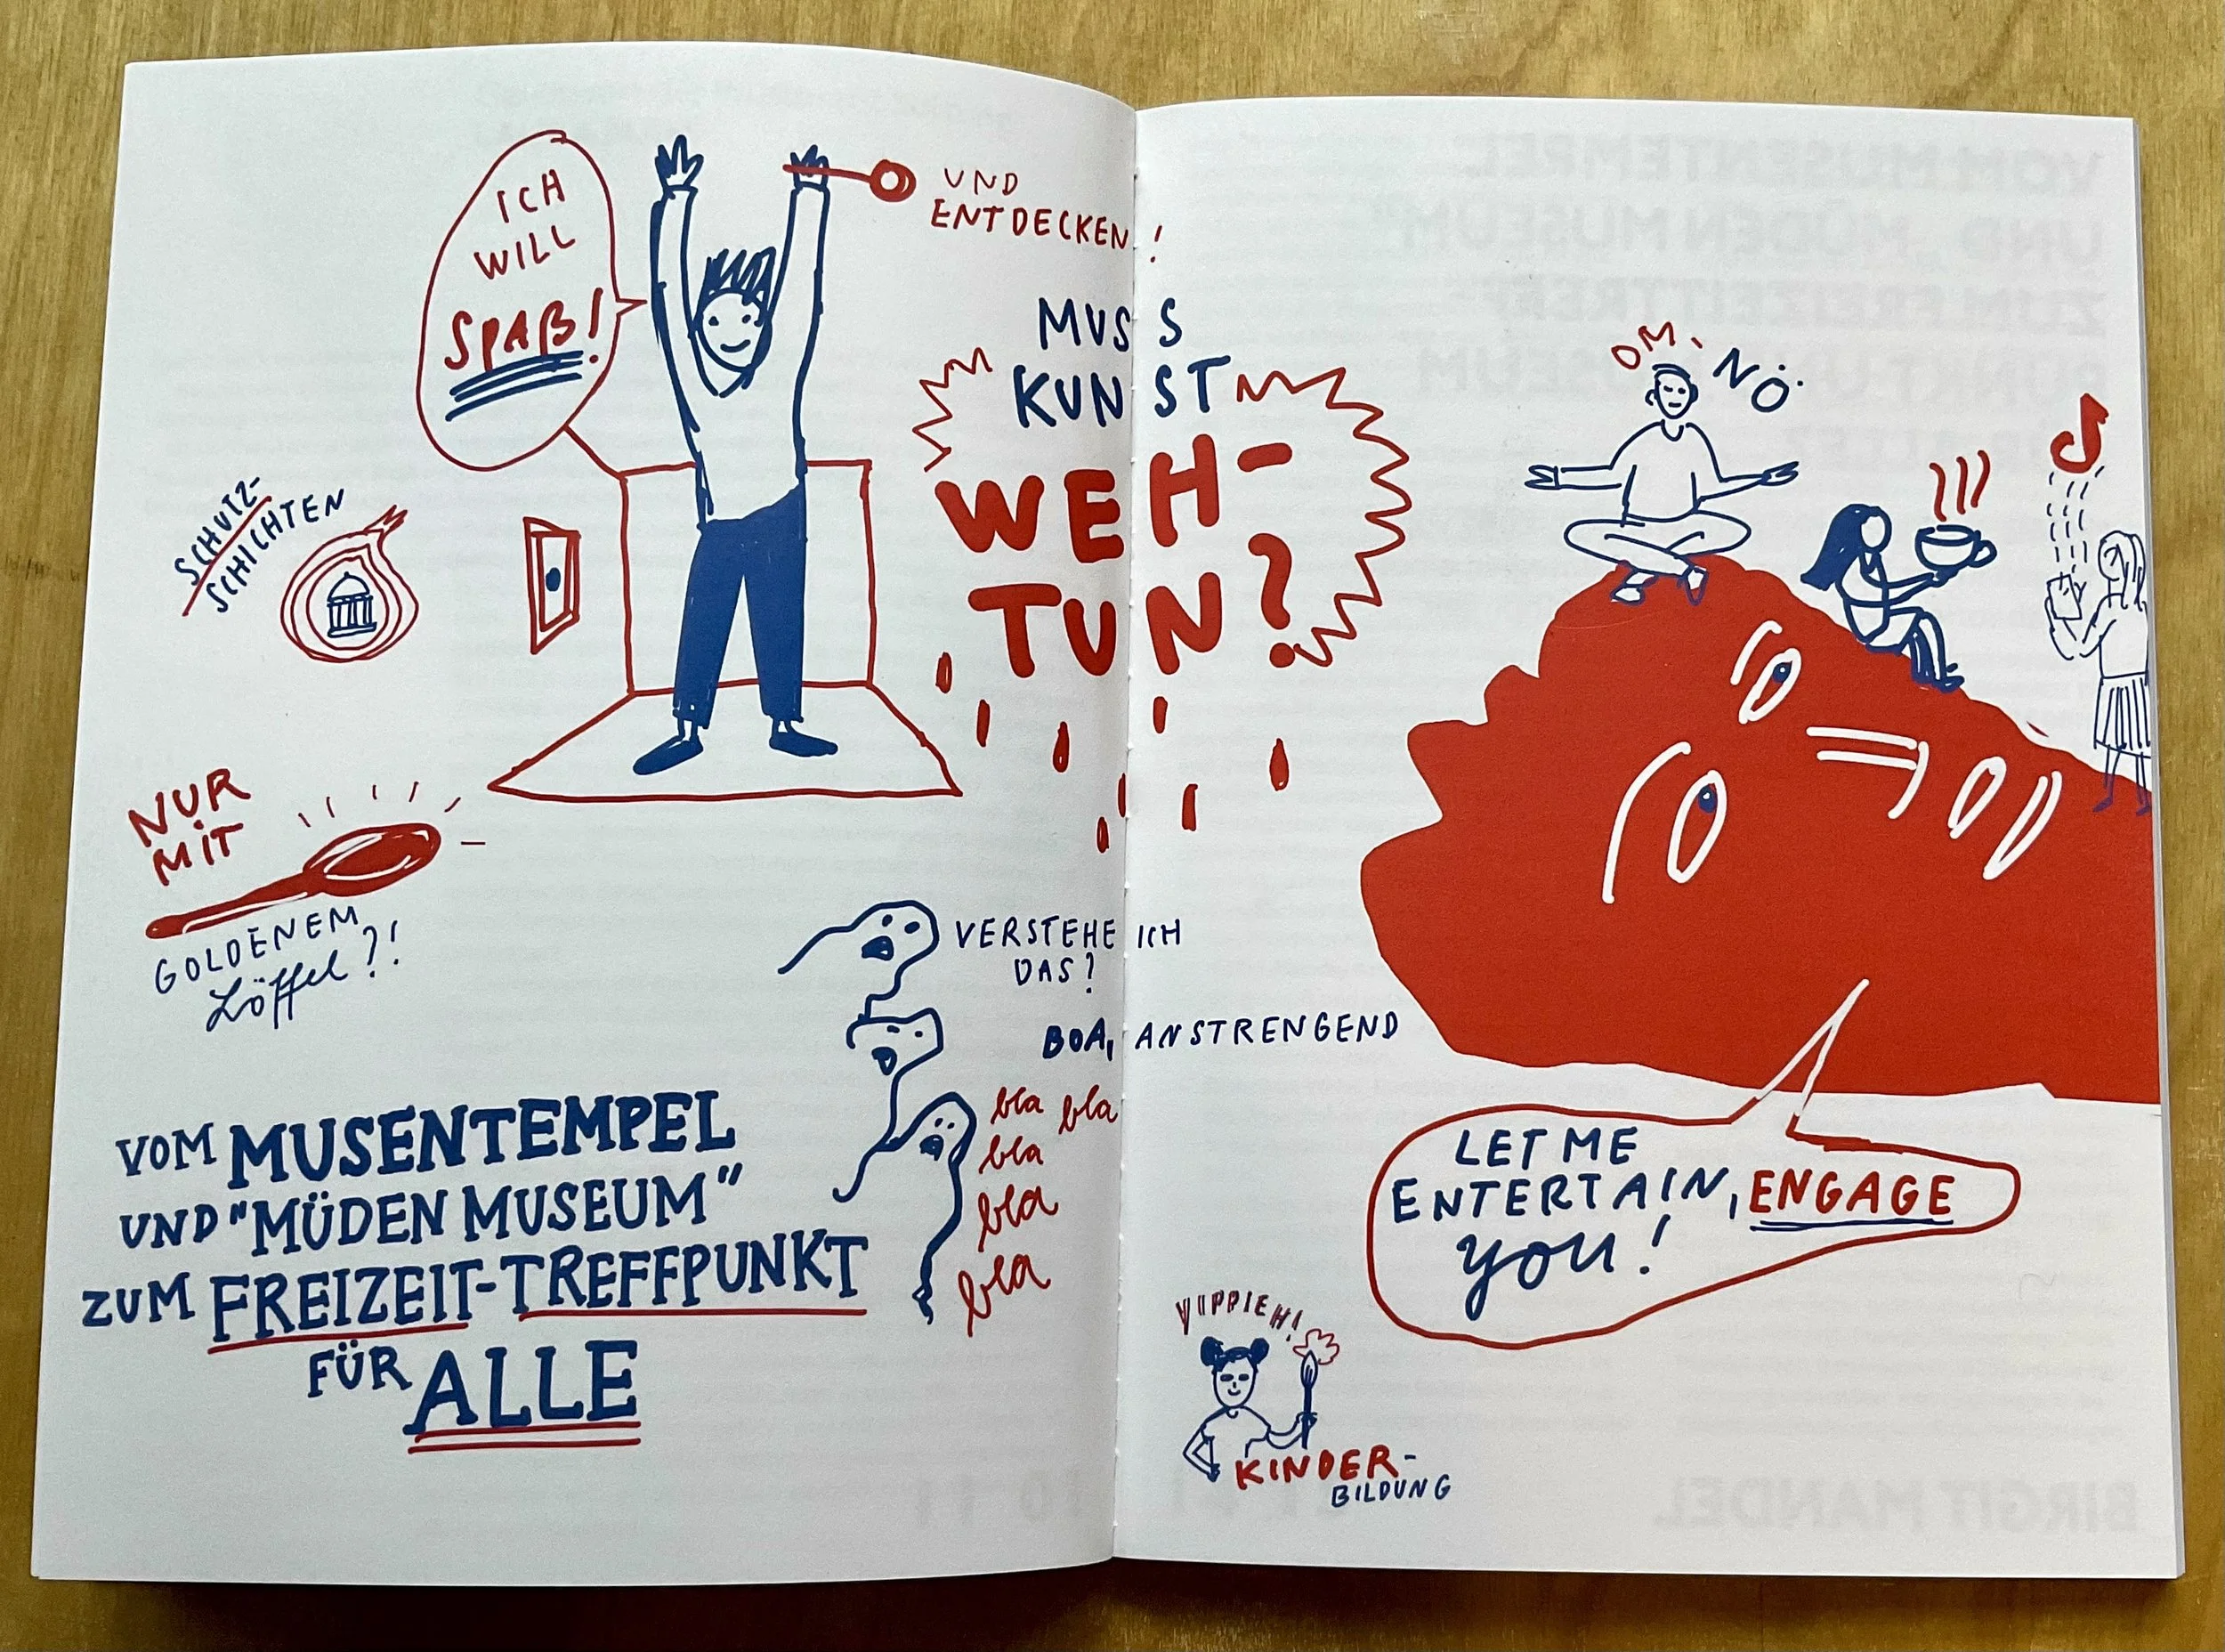 ICH
WILL
SPAẞ!
UND
ENTDECKEN!
MUSS
KUNST
WEH-
TUN?
SCHUTZ-
SCHICHTEN
NUR
MIT
GOLDENEM
Löffel?!
VERSTEHE ICH
DAS?
BOA, ANSTRENGEND
bla bla
bla
bla
bla
VOM MUSENTEMPEL
UND "MÜDEN MUSEUM"
ZUM FREIZEIT-TREFFPUNKT
FÜR ALLE
OM,
NÖ.
LET ME
ENTERTAIN, ENGAGE
you!
YIPPIEH!
KINDER-
BILDUNG